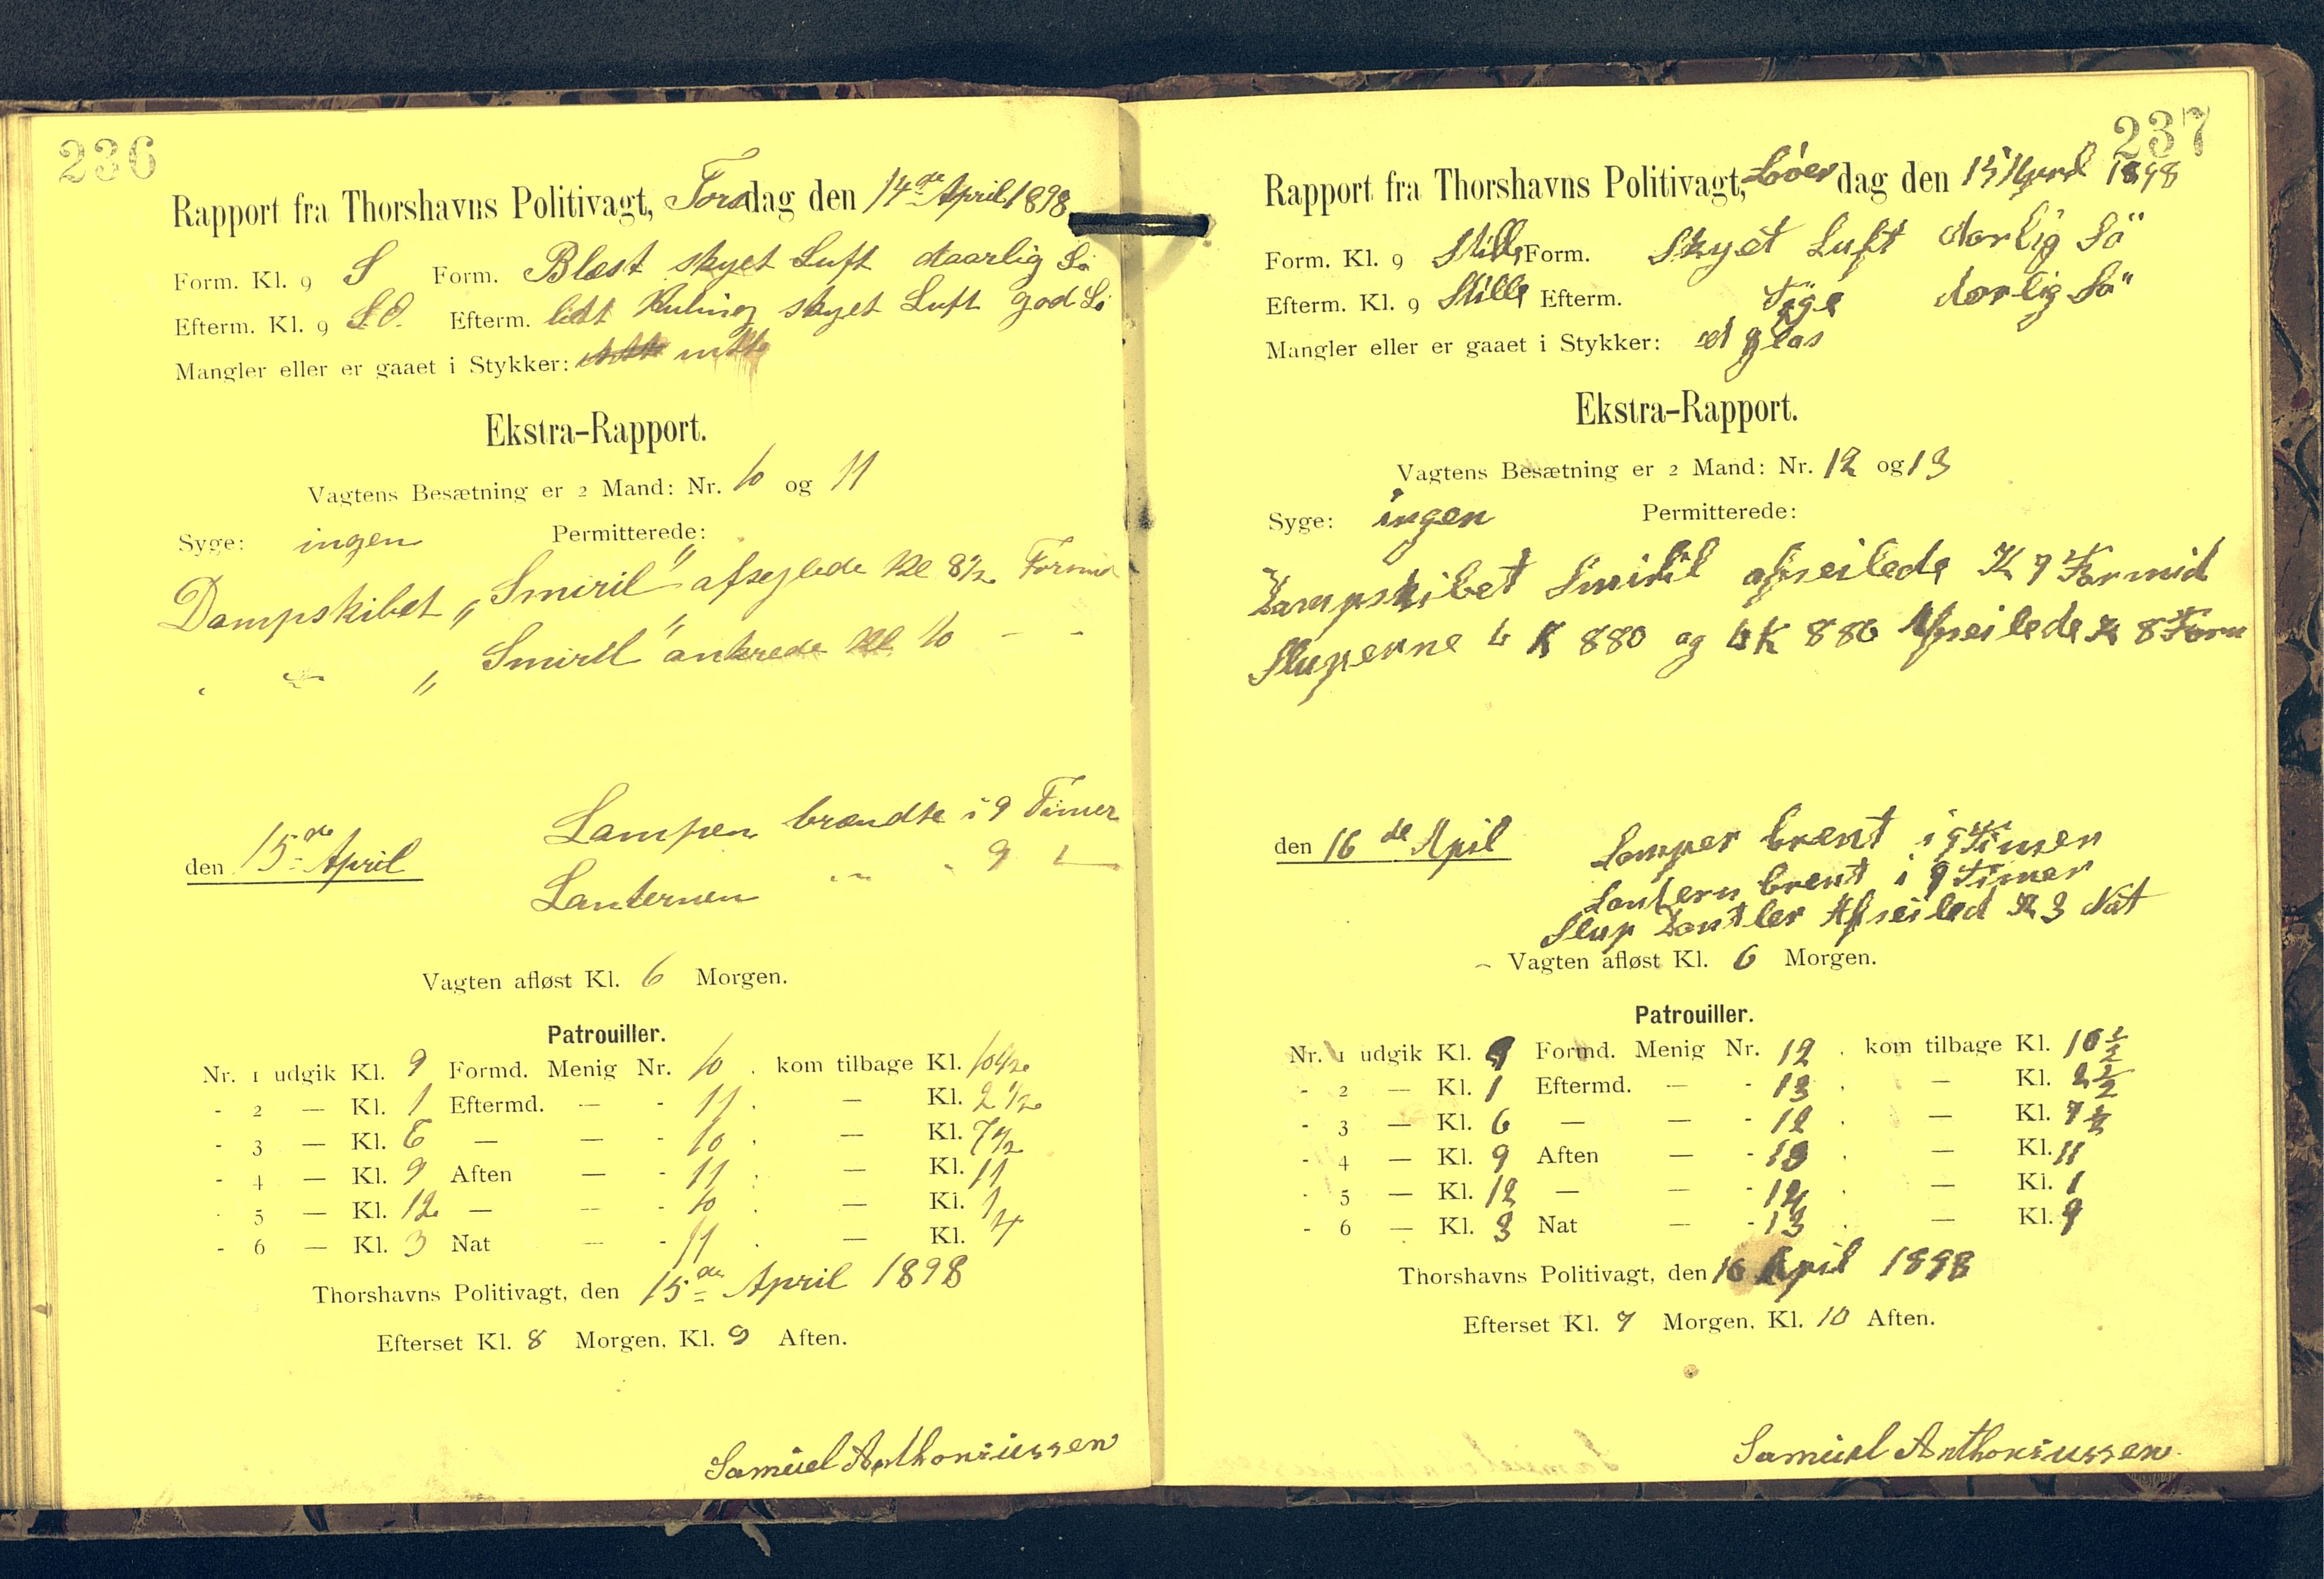 236
Rapport fra Thorshavns Politivagt, Torsdag den 14de April 1898
Form. Kl. 9 S Form. Blæst skyet Luft daarlig Sö
Efterm. Kl. 9 S.O. Efterm. lidt Kuling skyet Luft god Sö
Mangler eller er gaaet i Stykker: intet
Ekstra-Rapport.
Vagtens Besætning er 2 Mand: Nr. 10 og 11
Syge: ingen Permitterede:
Dampskibet „Smiril" afsejlede Kl 8½ Formd
" " „Smiril" ankrede Kl 10 - -
den 15de April Lampen brændte i 9 Timer
Lanternen " " 9 -
Vagten afløst Kl. 6 Morgen.
Patrouiller.
Nr. 1 udgik Kl. 9 Formd. Menig Nr. 10. kom tilbage Kl. 10½
- 2 — Kl. 1 Eftermd. — - 11. — Kl. 2½
- 3 — Kl. 6 — — - 10. — Kl. 7½
- 4 — Kl. 9 Aften — - 11. — Kl. 11
- 5 — Kl. 12 — — - 10. — Kl. 1
- 6 — Kl. 3 Nat — - 11. — Kl. 4
Thorshavns Politivagt, den 15de April 1898
Efterset Kl. 8 Morgen, Kl. 9 Aften.
Samuel Anthoniussen
237
Rapport fra Thorshavns Politivagt, dag den 15 April 1898
Form. Kl. 9 Stille Form. Skyet Luft dorlig Sö
Efterm. Kl. 9 Stille Efterm. Tyge dorlig Sö
Mangler eller er gaaet i Stykker: et glas
Ekstra-Rapport.
Vagtens Besætning er 2 Mand: Nr. 12 og 13
Syge: ingen Permitterede:
Dampskibet Smiril afseilede Kl 9 Formid
Sluperne K 880 og K 886 Afseilede Kl 8 Form
den 16 de April Lamper brent i 9 Timer
Lantern brent i 9 Timer
Slup Afseiled Kl 3 Nat
Vagten afløst Kl. 6 Morgen.
Patrouiller.
Nr. 1 udgik Kl. 9 Formd. Menig Nr. 12. kom tilbage Kl. 10½
- 2 — Kl. 1 Eftermd. — - 13. — Kl. 2½
- 3 — Kl. 6 — — - 12. — Kl. 7½
- 4 — Kl. 9 Aften — - 13. — Kl. 11
- 5 — Kl. 12 — — - 12. — Kl. 1
- 6 — Kl. 3 Nat — - 13. — Kl.
Thorshavns Politivagt, den 16 April 1898
Efterset Kl. 7 Morgen, Kl. 10 Aften.
Samuel Anthoniussen